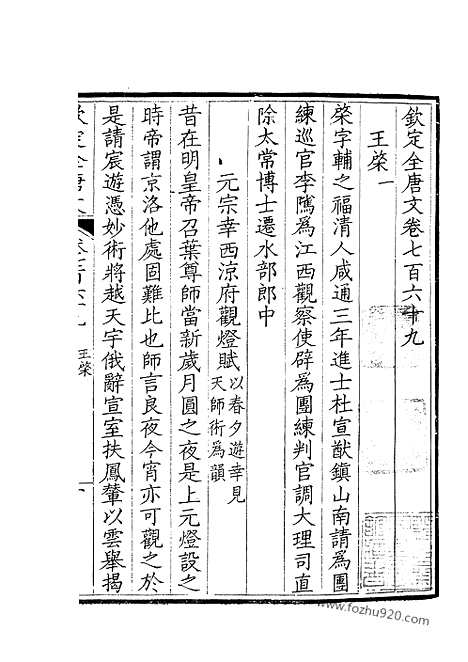 欽定全唐文卷七百六十九
王棨一
棨字輔之福清人咸通三年進士杜宣猷鎮山南請為團
練巡官李隲為江西觀察使辟為團練判官調大理司直
除太常博士遷水部郎中
元宗幸西涼府觀燈賦以春夕遊幸見
天師術為韻
昔在明皇帝召葉尊師當新歲月圓之夜是上元燈設之
時帝謂京洛他處固難比也師言良夜今宵亦可觀之於
是請宸遊憑妙術將越天宇俄辭宣室扶鳳輦以雲舉揭
王棨
www.fozhu920.com